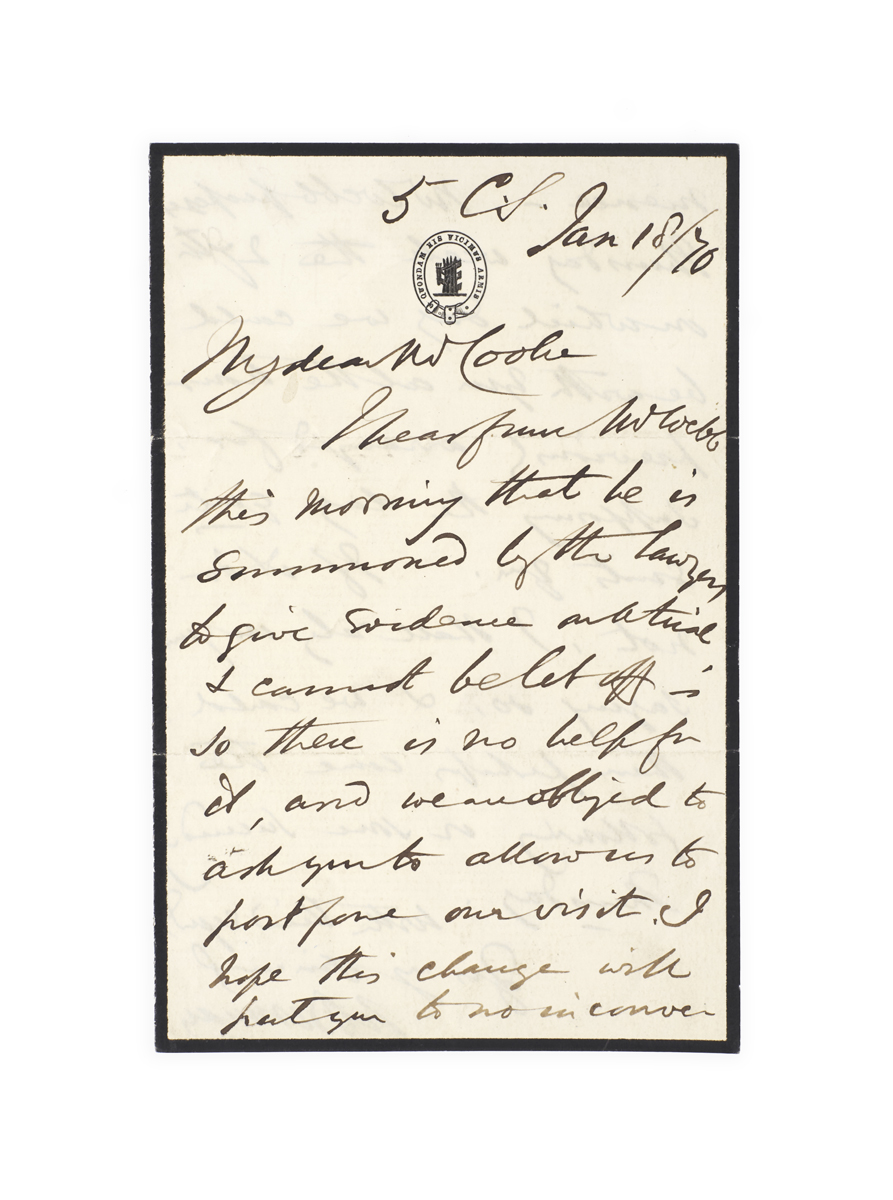 5 C.S. Jan 18/70
QUONDAM HIS VICIMUS ARMIS
My dear Mr Cooke
I hear from Mr Webb
this morning that he is
summoned by the lawyers
to give evidence at trial
& cannot be let off -
so there is no help for
it, and we are obliged to
ask you to allow us to
postpone our visit. I
hope this change will
put you to no inconve